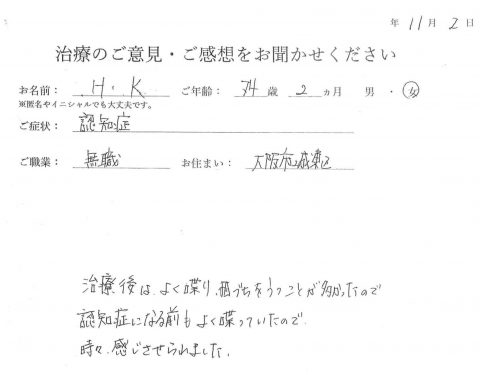 年 11 月 2 日
治療のご意見・ご感想をお聞かせください
お名前： H・K ご年齢： 74 歳 2 ヵ月 男 ・ 女
※匿名やイニシャルでも大丈夫です。
ご症状： 認知症
ご職業： 無職 お住まい： 大阪市城東区
治療後は、よく喋り、相づちをうつことが多かったので
認知症になる前もよく喋っていたので、
時々、感じさせられました。